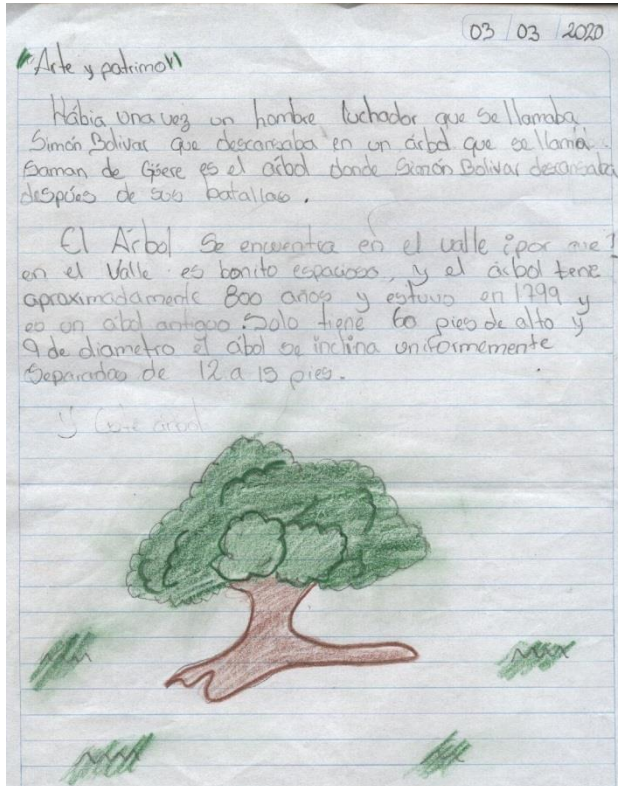 03 / 03 / 2020
"Arte y patrimon"
Hábia una vez un hombre luchador que se llamaba
Simón Bolivar que descansaba en un árbol que se llama
Saman de Güere es el árbol donde Simón Bolivar descansaba
despúes de sus batallas.
El Árbol se encuentra en el valle ¿por que?
en el Valle es bonito espacioso, y el árbol tene
aproximadamente 800 años y estuvo en 1799 y
es un abol antiguo. Solo tiene 60 pies de alto y
9 de diametro el abol se inclina uniformemente
Separadas de 12 a 15 pies.
y este arbol